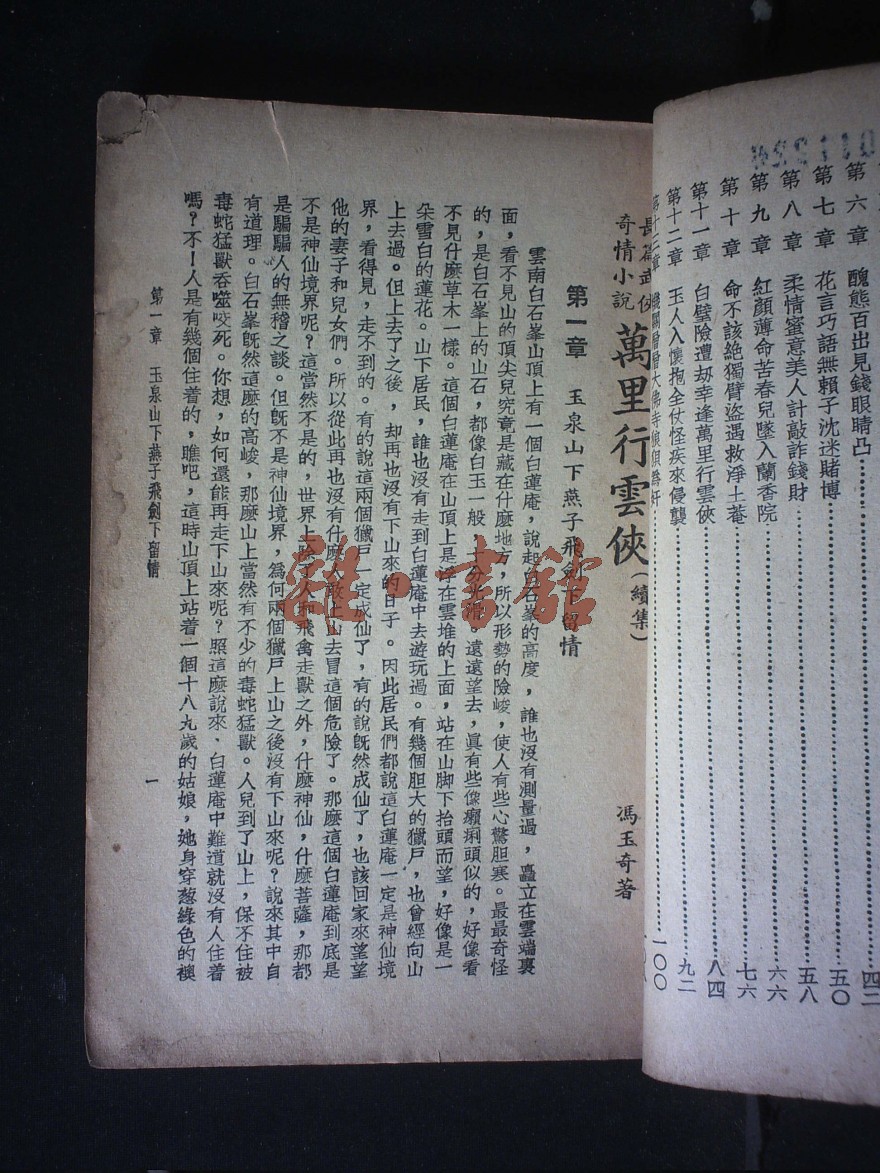 第六章　醜態百出見錢眼睛凸…………四二
第七章　花言巧語無賴子沈迷賭博…………五〇
第八章　柔情蜜意美人計敲詐錢財…………五八
第九章　紅顏薄命苦春兒墜入蘭香院…………六六
第十章　命不該絕獨臂盜遇救淨土菴…………七六
第十一章　白璧險遭刼幸逢萬里行雲俠…………八四
第十二章　玉人入懷抱全仗怪疾來侵襲…………九二
一〇〇
長篇武俠
奇情小說
萬里行雲俠（續集）
馮玉奇著
第一章　玉泉山下燕子飛劍下留情
雲南白石峯山頂上有一個白蓮庵，說起白石峯的高度，誰也沒有測量過，矗立在雲端裏
面，看不見山的頂尖兒究竟是藏在什麼地方，所以形勢的險峻，使人有些心驚胆寒。最最奇怪
的，是白石峯上的山石，都像白玉一般，十分光滑。遠遠望去，眞有些像癩痢頭似的，好像看
不見什麼草木一樣。這個白蓮庵在山頂上是浮在雲堆的上面，站在山脚下抬頭而望，好像是一
朶雪白的蓮花。山下居民，誰也沒有走到白蓮庵中去遊玩過。有幾個胆大的獵戶，也曾經向山
上去過。但上去了之後，却再也沒有下山來的日子。因此居民們都說這白蓮庵一定是神仙境
界，看得見，走不到的。有的說這兩個獵戶一定成仙了，有的說旣然成仙了，也該回家來望望
他的妻子和兒女們。所以從此再也沒有什麼人敢上山去冒這個危險了。那麼這個白蓮庵到底是
不是神仙境界呢？這當然不是的，世界上除了人和飛禽走獸之外，什麼神仙，什麼菩薩，那都
是騙騙人的無稽之談。但旣不是神仙境界，爲何兩個獵戶上山之後沒有下山來呢？說來其中自
有道理。白石峯旣然這麼的高峻，那麼山上當然有不少的毒蛇猛獸。人兒到了山上，保不住被
毒蛇猛獸吞噬咬死。你想，如何還能再走下山來呢？照這麼說來，白蓮庵中難道就沒有人住着
嗎？不！人是有幾個住着的，瞧吧，這時山頂上站着一個十八九歲的姑娘，她身穿葱綠色的襖
第一章　玉泉山下燕子飛劍下留情
一
雜·書館